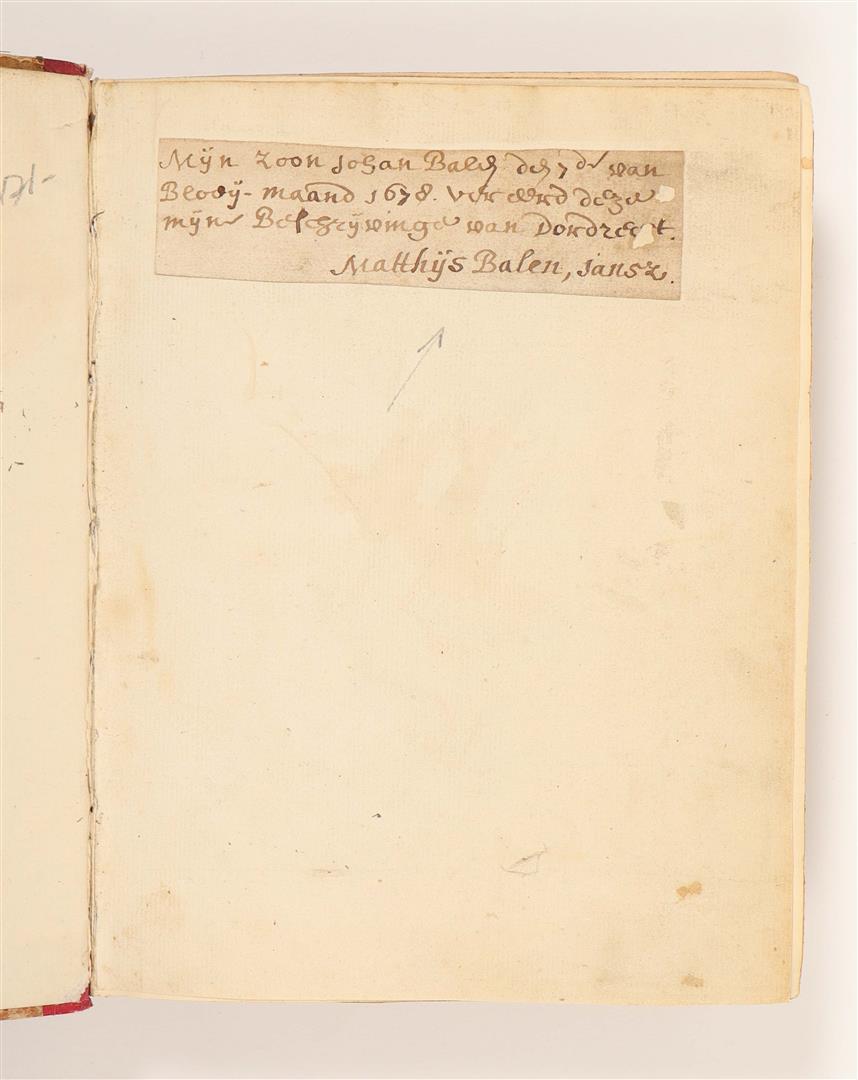 Mijn zoon Johan Balen den 7de van
Bloeij-maand 1678. vereerd deze
mijne Beschrijvinge van Dordrecht.
Matthijs Balen, Jansz.